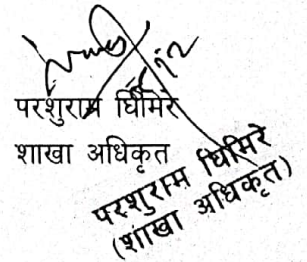 परशुराम घिमिरे
शाखा अधिकृत
परशुराम घिमिरे
(शाखा अधिकृत)